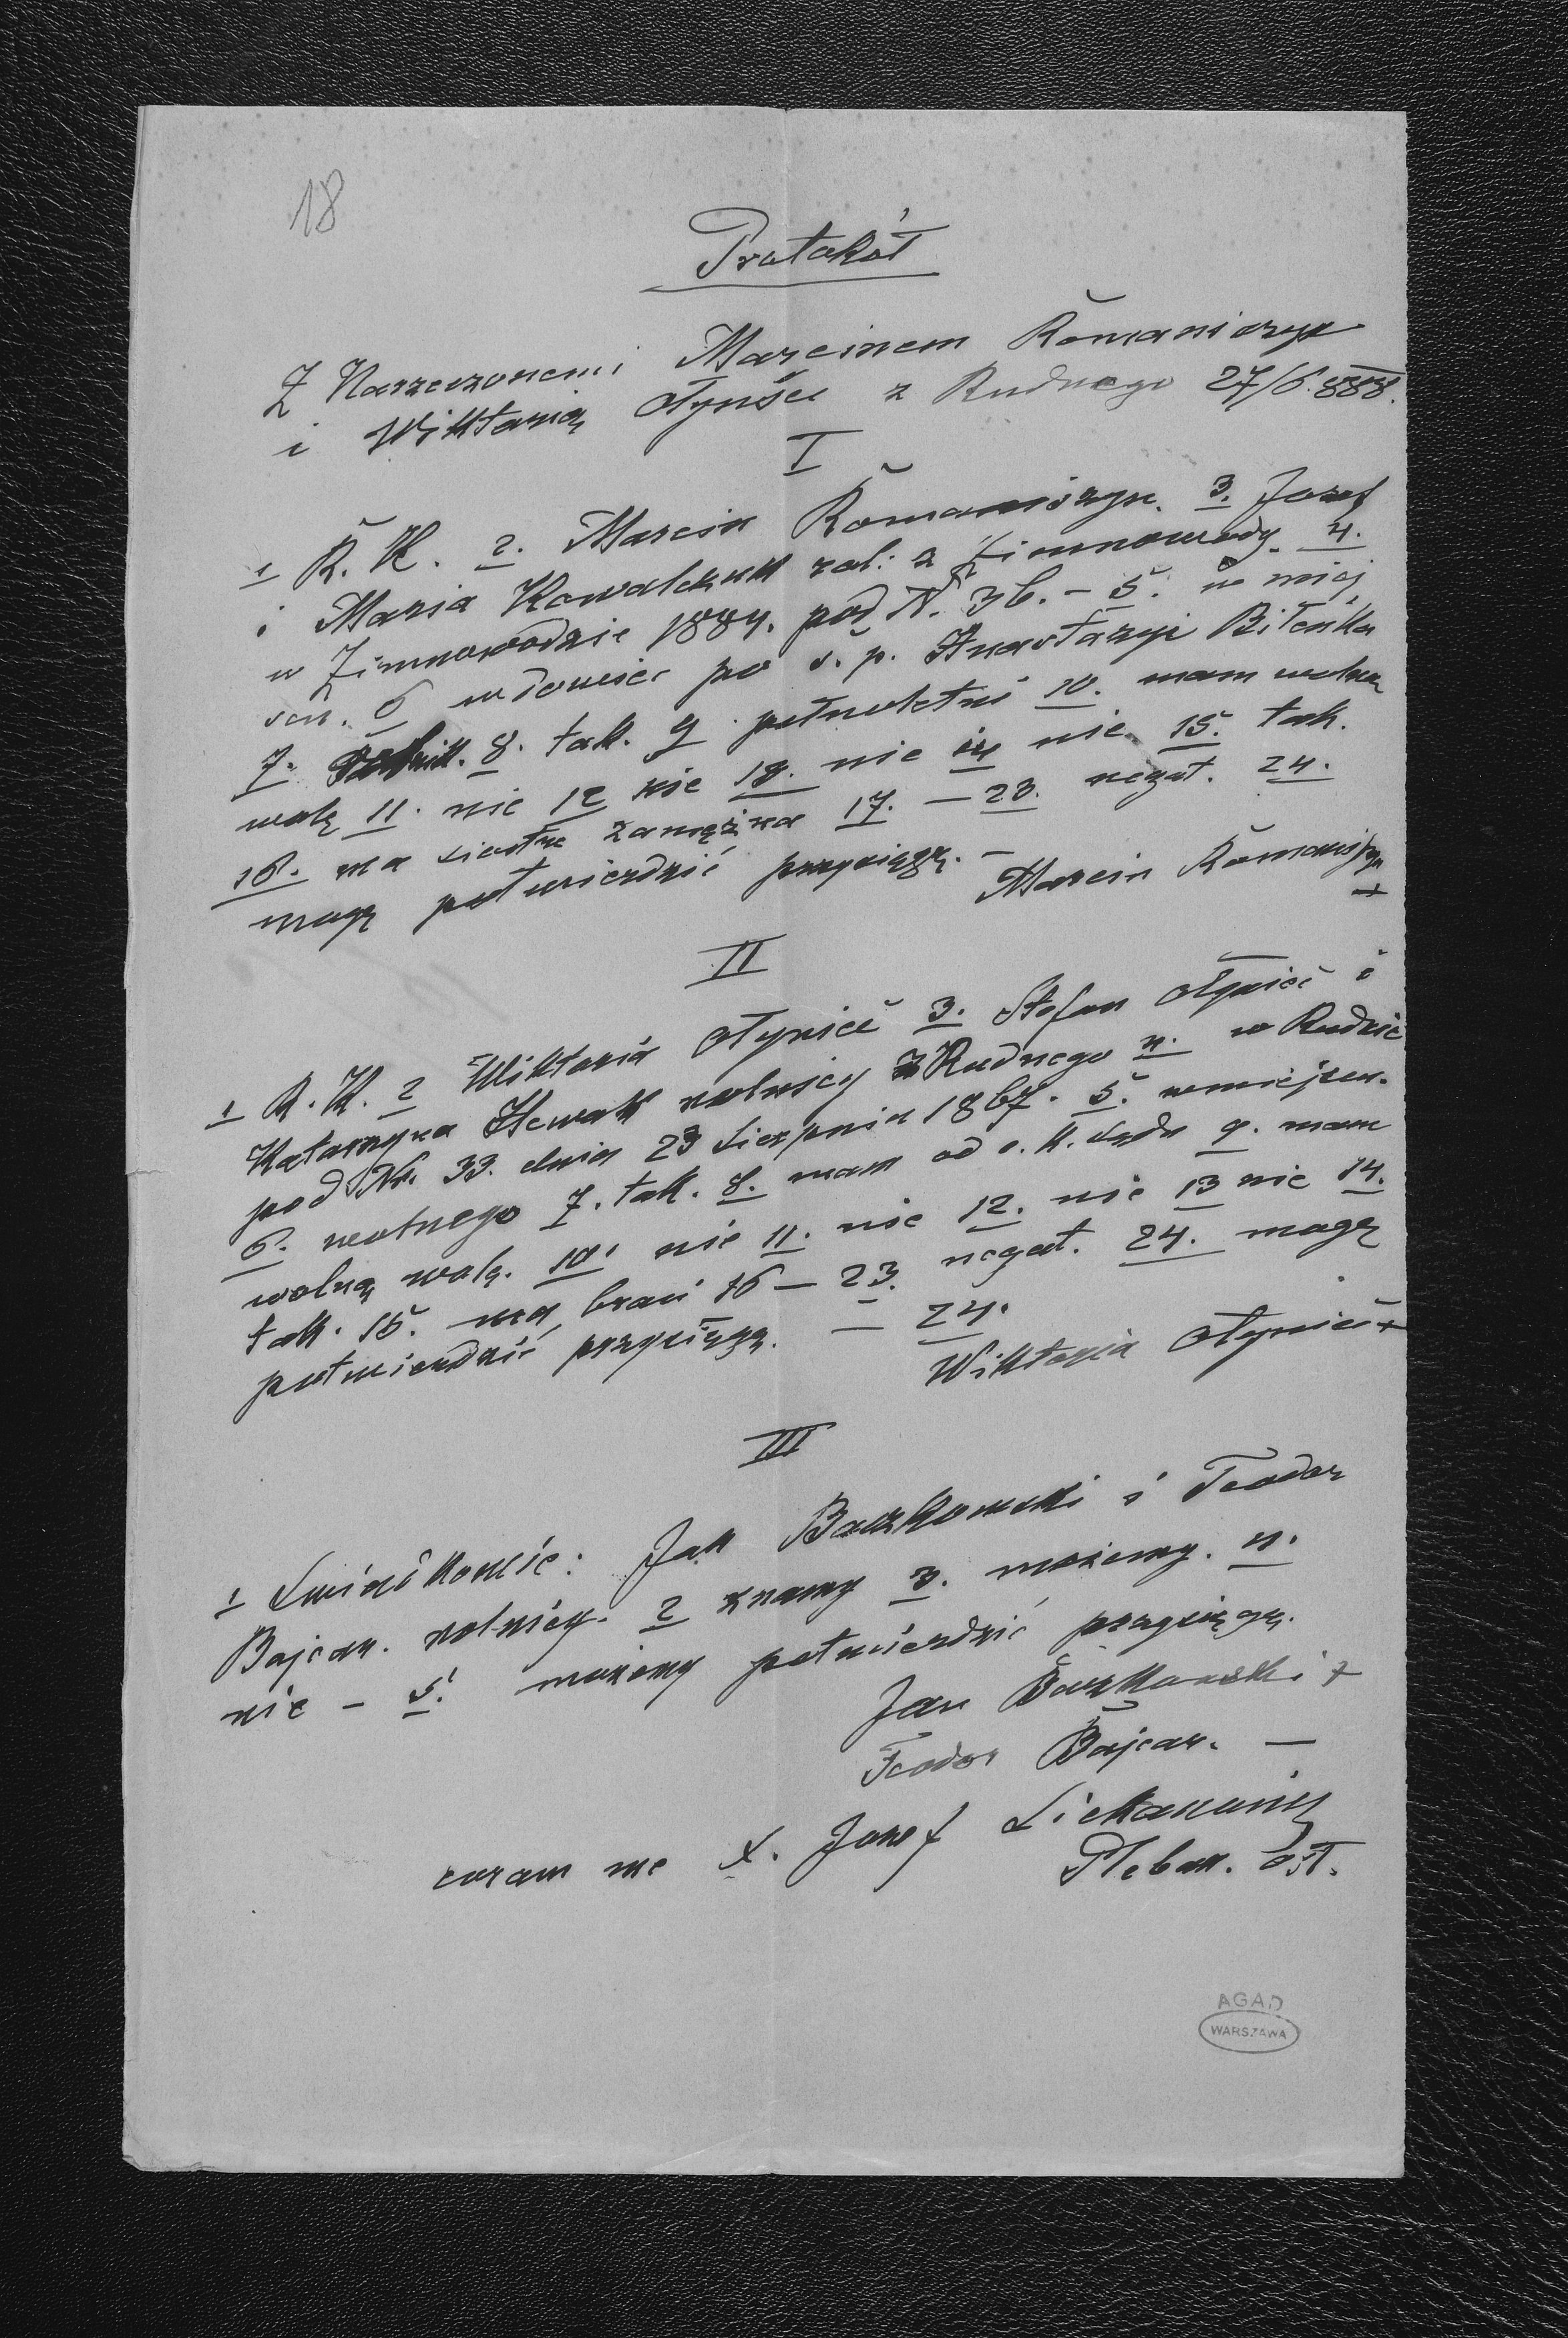 18
Protokół
Z Narzeczonemi Marcinem Romaniszyn
i Wiktorią Ołyniec z Rudnego 27/6. 888.
I
1 R. K. 2. Marcin Romaniszyn. 3. Józef
i Maria Kowalczuk rol: z Zimnowody. 4.
w Zimnowodzie 1884. pod N. 36. - 5. w miej
scu. 6 wdowiec po ś. p. Anastazyi
7. 8. tak. 9. pełnoletni 10. mam wolną
wolę 11. nie 12 nie 13. nie 14 nie 15. tak.
16. ma siostrę zamężna 17. - 23. negat. 24.
mogę potwierdzić przysięgą. -
Marcin Romaniszyn
+
II
1 R. K. 2 Wiktoria Ołyniec 3. Stefan Ołyniec i
Katarzyna Nowak rolnicy z Rudnego 4. w Rudnie
pod Nr. 33. dnia 23 Sierpnia 1867. 5. w miejscu.
6. wolnego 7. tak. 8. mam od c. k. sądu 9. mam
wolną wolę. 10. nie 11. nie 12. nie 13 nie 14.
tak. 15. ma braci 16 - 23. negat. 24. mogę
potwierdzić przysięgą. - 24.
Wiktoria Ołyniec +
III
1 Świadkowie: Jan Baczkowski i Teodor
Bajcar. rolnicy. 2 znamy 3. możemy. 4.
nie - 5. możemy potwierdzić przysięgą.
Jan Baczkowski +
Teodor Bajcar. -
coram me X. Józef
Pleban. ŏst.
AGAD
WARSZAWA